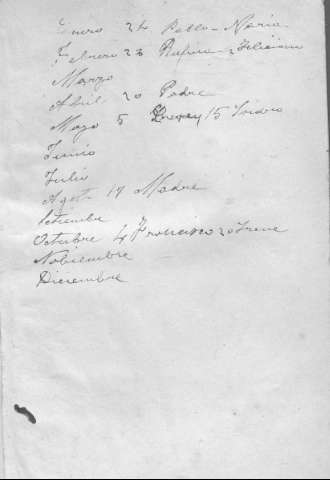 Enero 24 Pablo - Maria
Febrero 23 Rufina - Feliciano
Marzo
Abril 20 Padre
Mayo 5 15 Isidro
Junio
Julio
Agosto 14 Madre
Setiembre
Octubre 4 Francisco 20 Irene
Nobiembre
Diciembre